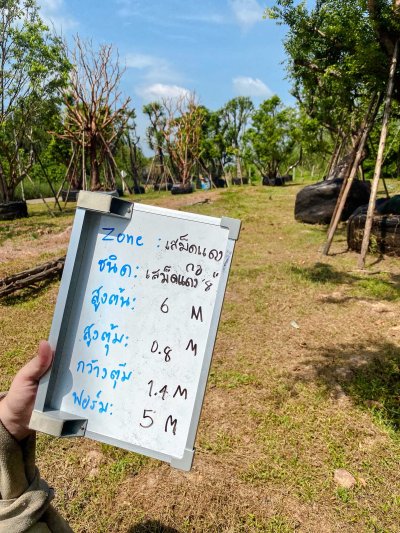 Zone : เสม็ดแดง
ชนิด: เสม็ดแดง กอ "8"
สูงต้น: 6 M
สูงตุ้ม: 0.8 M
กว้างตุ้ม 1.4 M
ฟอร์ม: 5 M